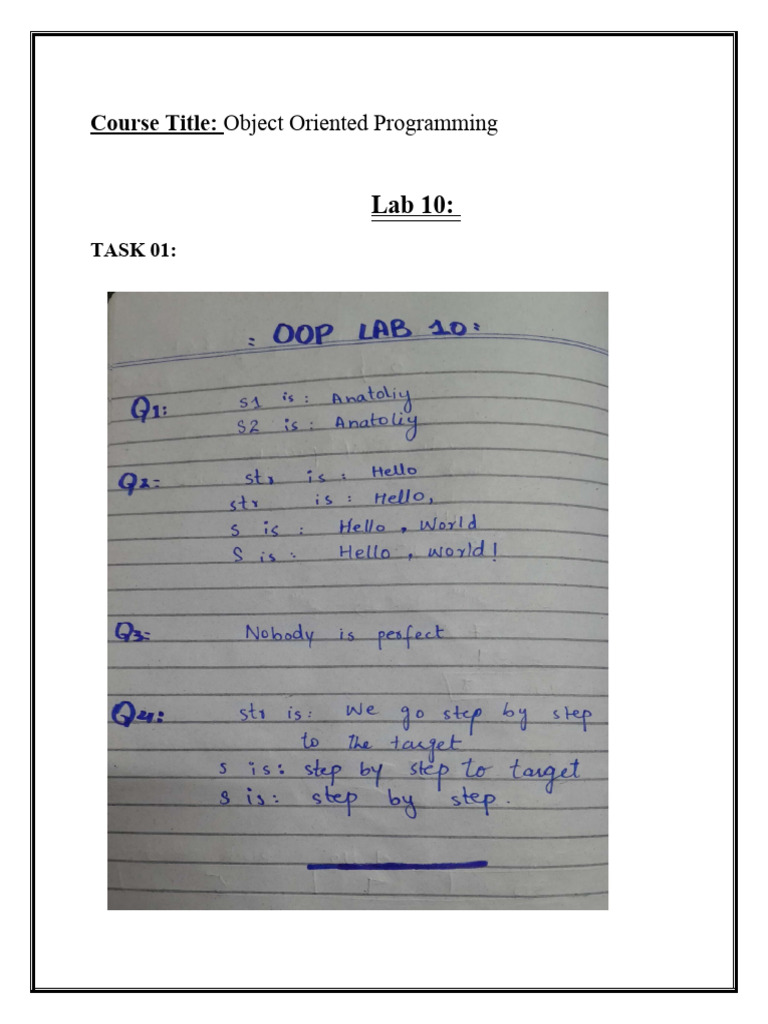 Course Title: Object Oriented Programming
Lab 10:
TASK 01:
: OOP LAB 10:
Q1: S1 is : Anatoliy
S2 is : Anatoliy
Q2:- str is : Hello
str is : Hello,
S is : Hello , World
S is : Hello , world!
Q3:- Nobody is perfect
Q4: str is: We go step by step
to the target
s is: step by step to target
s is: step by step.